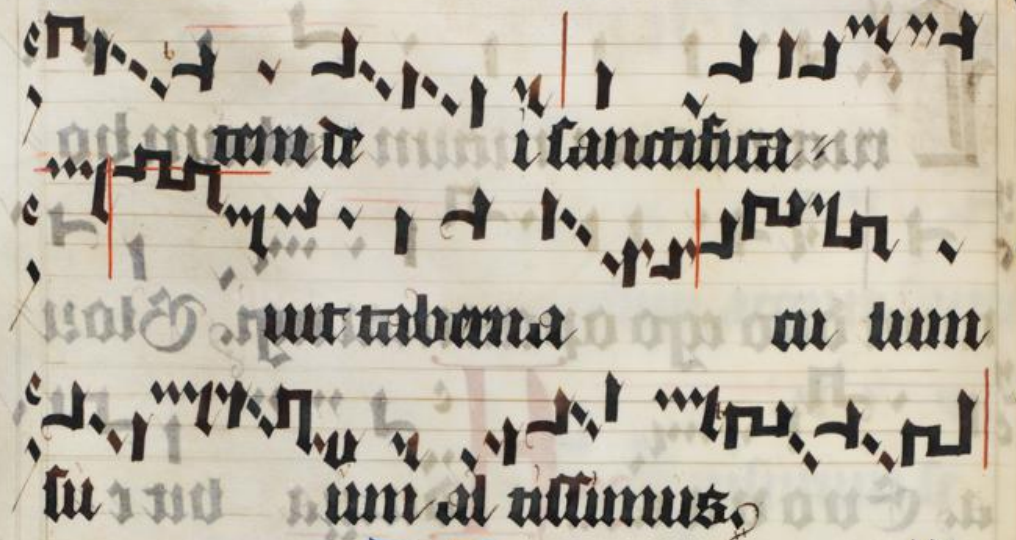 tem de i sanctifica
uit taberna cu lum
su um al tissimus.